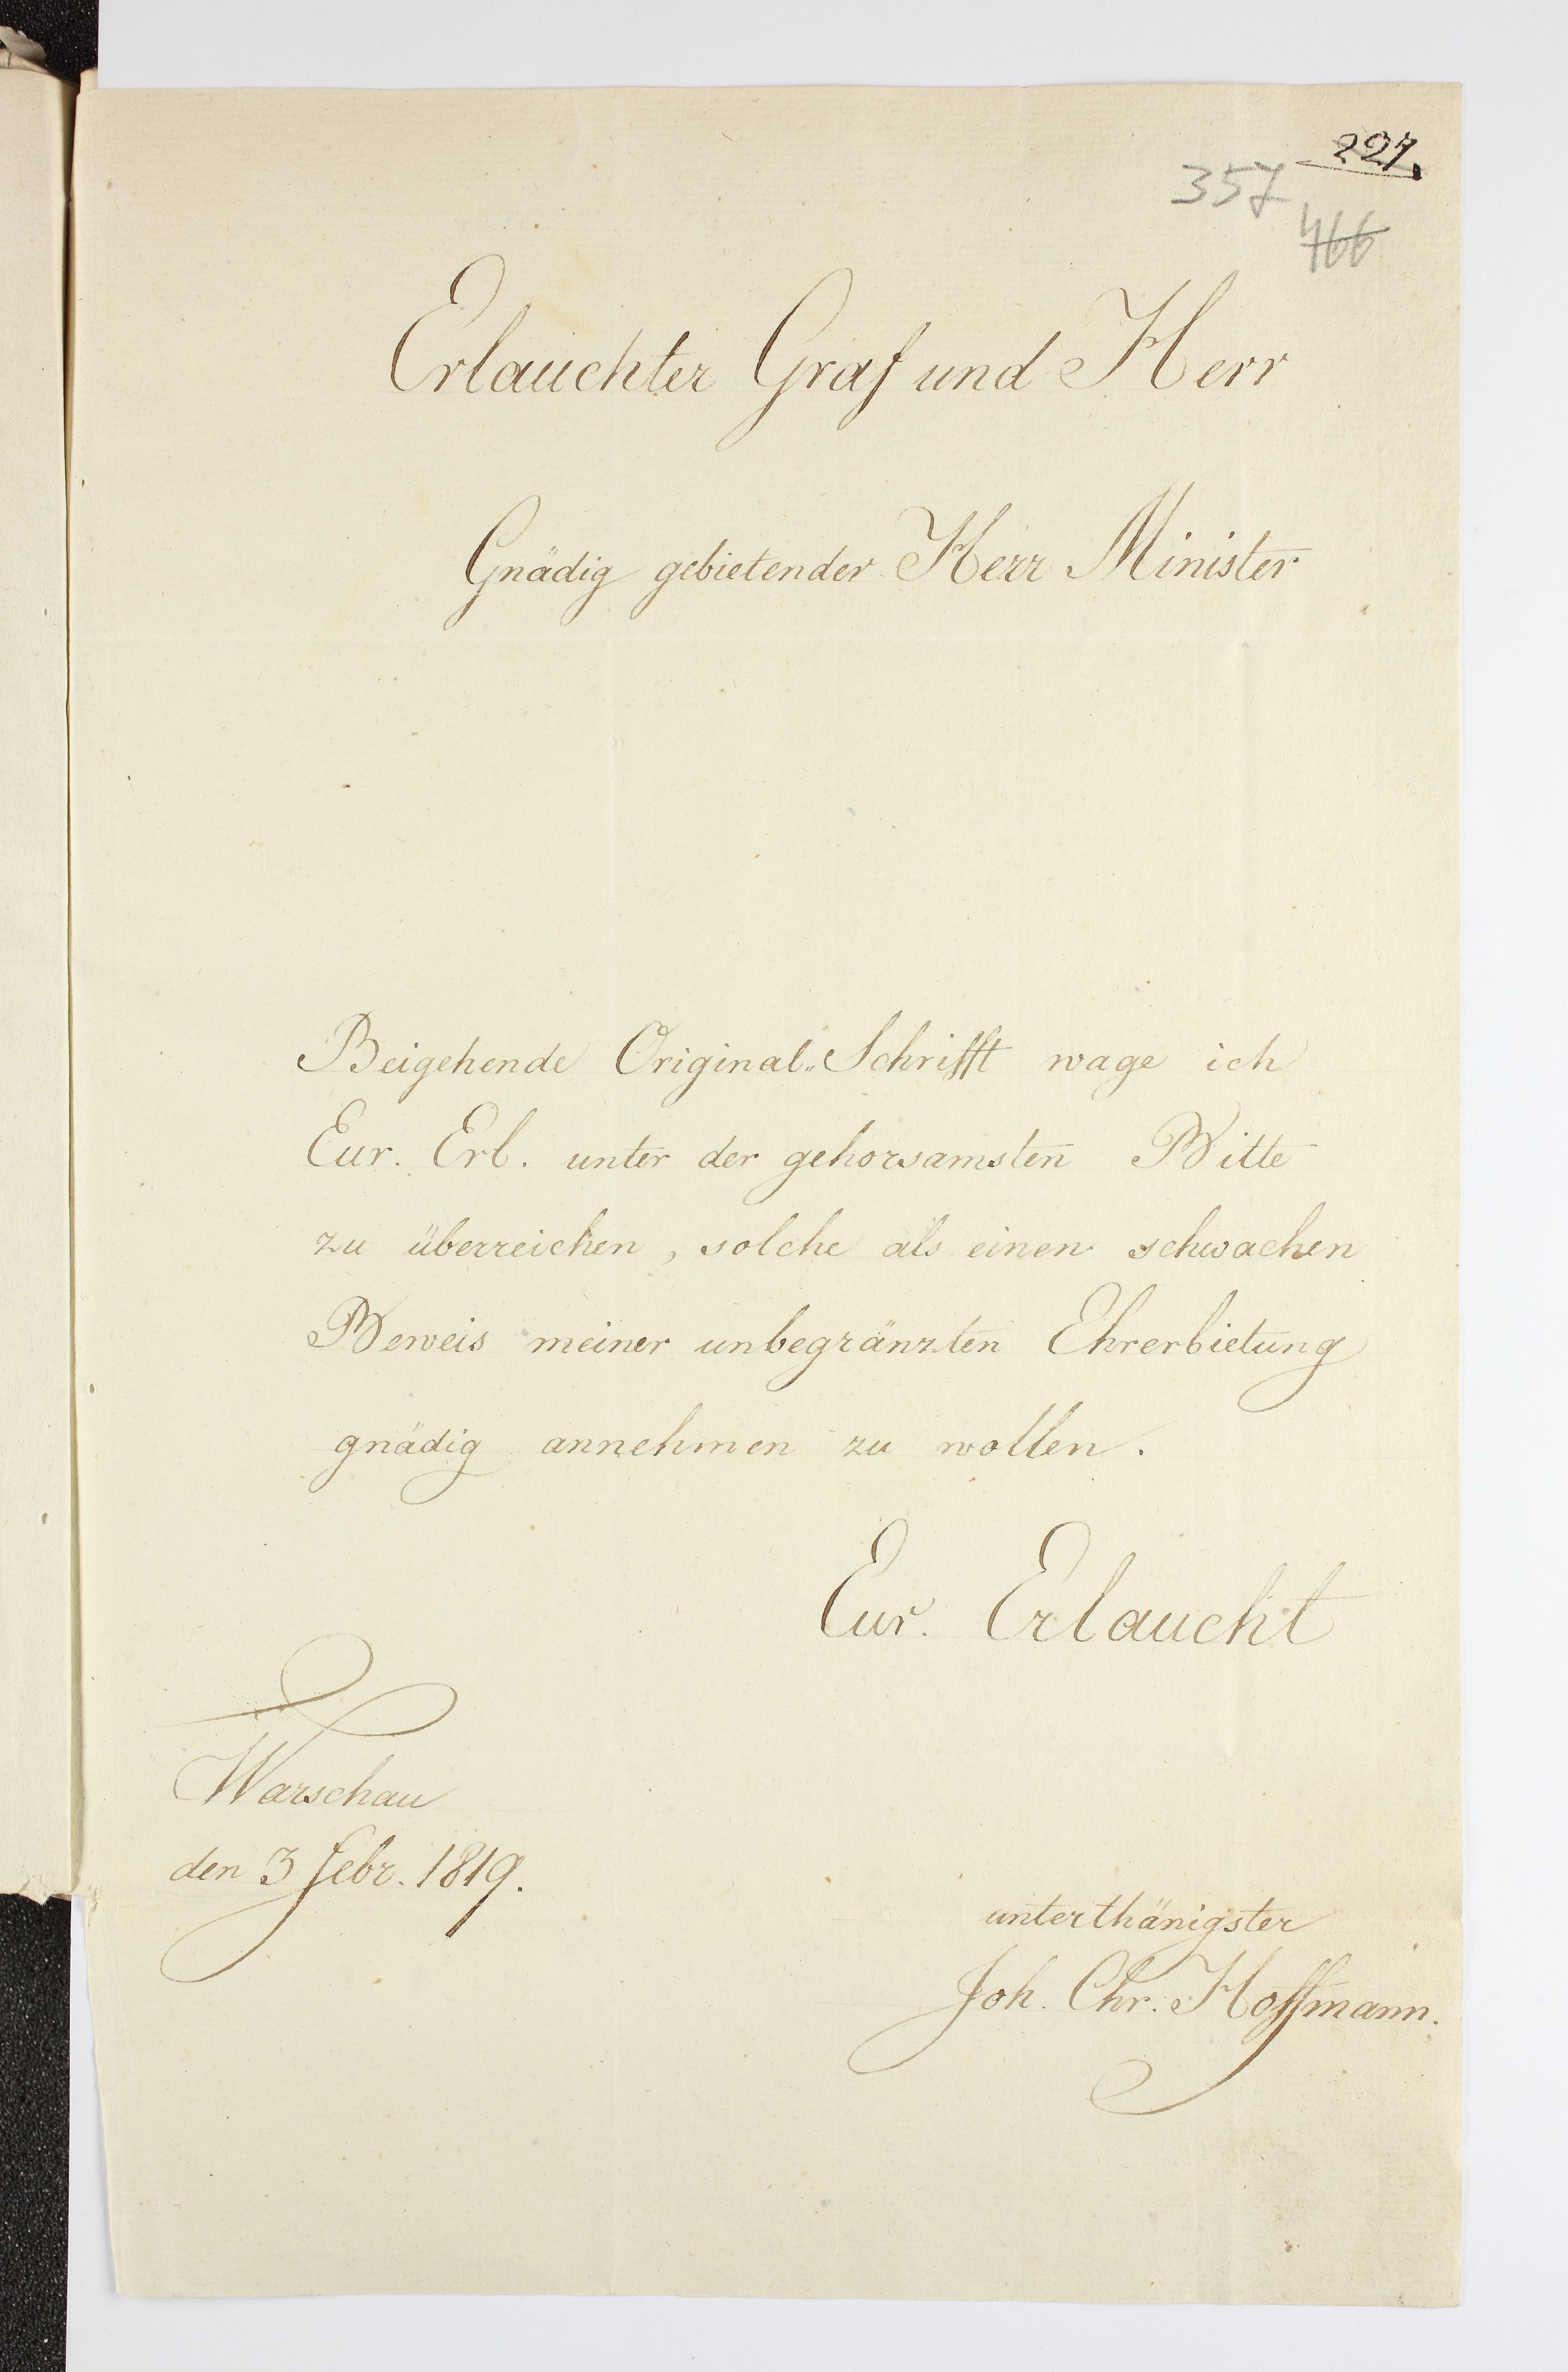 227.
357
466
Erlauchter Graf und Herr
Gnädig gebietender Herr Minister
Beigehende Original„Schrifft wage ich
Eur. Erl. unter der gehorsamsten Bitte
zu überreichen, solche als einen schwachen
Beweis meiner unbegränzten Ehrerbietung
gnädig annehmen zu wollen.
Eur. Erlaucht
Warschau
den 3 Febr. 1819.
unterthänigster
Joh. Chr. Hoffmann.